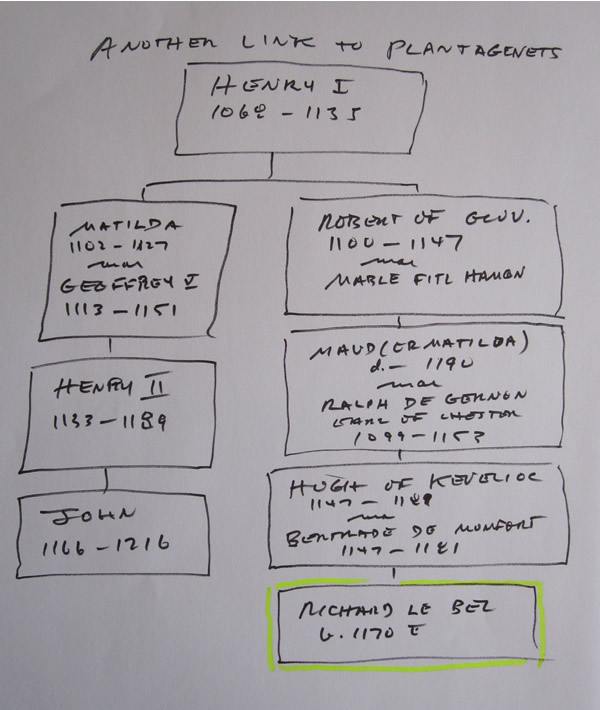 ANOTHER LINK TO PLANTAGENETS
HENRY I
1068 – 1135
MATILDA
1102 – 1127
mar
GEOFFREY V
1113 – 1151
HENRY II
1133 – 1189
JOHN
1166 – 1216
ROBERT OF GLOU.
1100 – 1147
mar
MABLE FITZ HAMON
MAUD (ER MATILDA)
d. – 1190
mar
RALPH DE GERNON
EARL OF CHESTER
1099 – 1153
HUGH OF KEVELIOC
1147 –
BERTRADE DE MONFORT
1147 – 1181
RICHARD LE BEZ
b. 1170